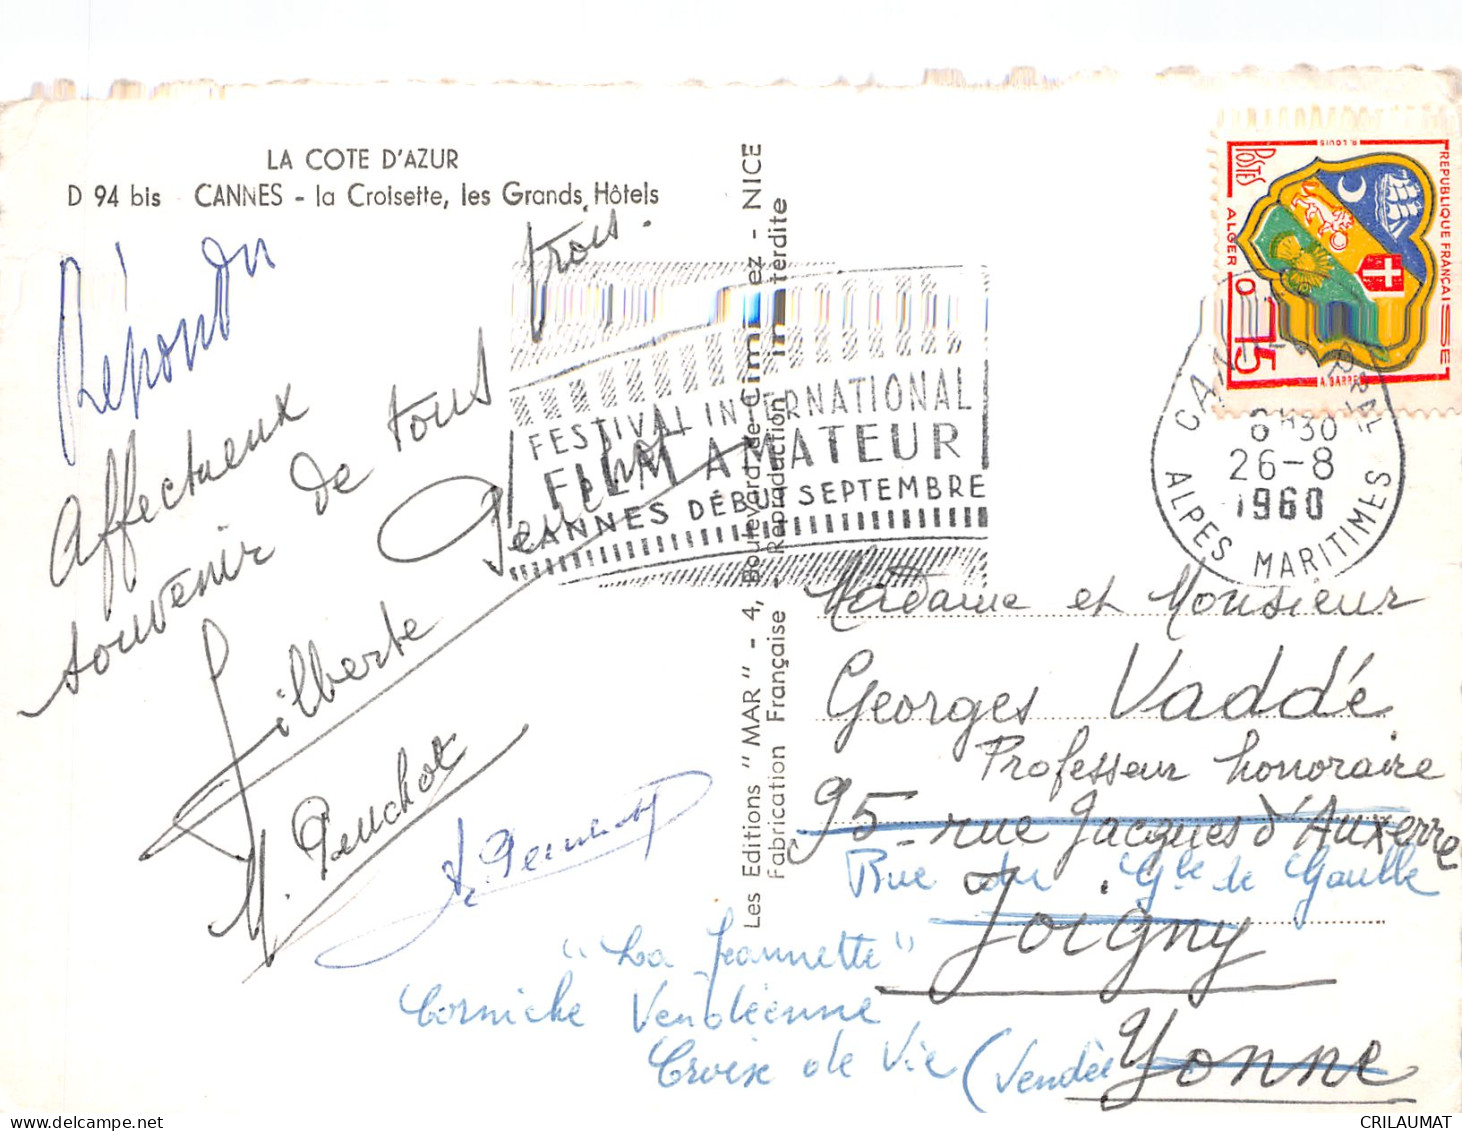 LA COTE D'AZUR
D 94 bis CANNES - la Croisette, les Grands Hôtels
Répondu
Affectueux
souvenir de tous trois.
Gilberte Peuchot
M. Peuchot
Peuchot
Les Editions "MAR" - 4, Boulevard de Cimiez - NICE
Fabrication Française - Reproduction interdite
FESTIVAL INTERNATIONAL
FILM AMATEUR
CANNES DÉBUT SEPTEMBRE
POSTES
ALGER
0,15
R. LOUIS
REPUBLIQUE FRANÇAISE
A. BARRE
8H30
26-8
1960
ALPES MARITIMES
Madame et Monsieur
Georges Vaddé
Professeur honoraire
95 - rue Jacques d'Auxerre
Rue du Gle de Gaulle
Joigny
Yonne
"La Jeannette"
Corniche Vendéenne
Croix de Vie (Vendée
CRILAUMAT